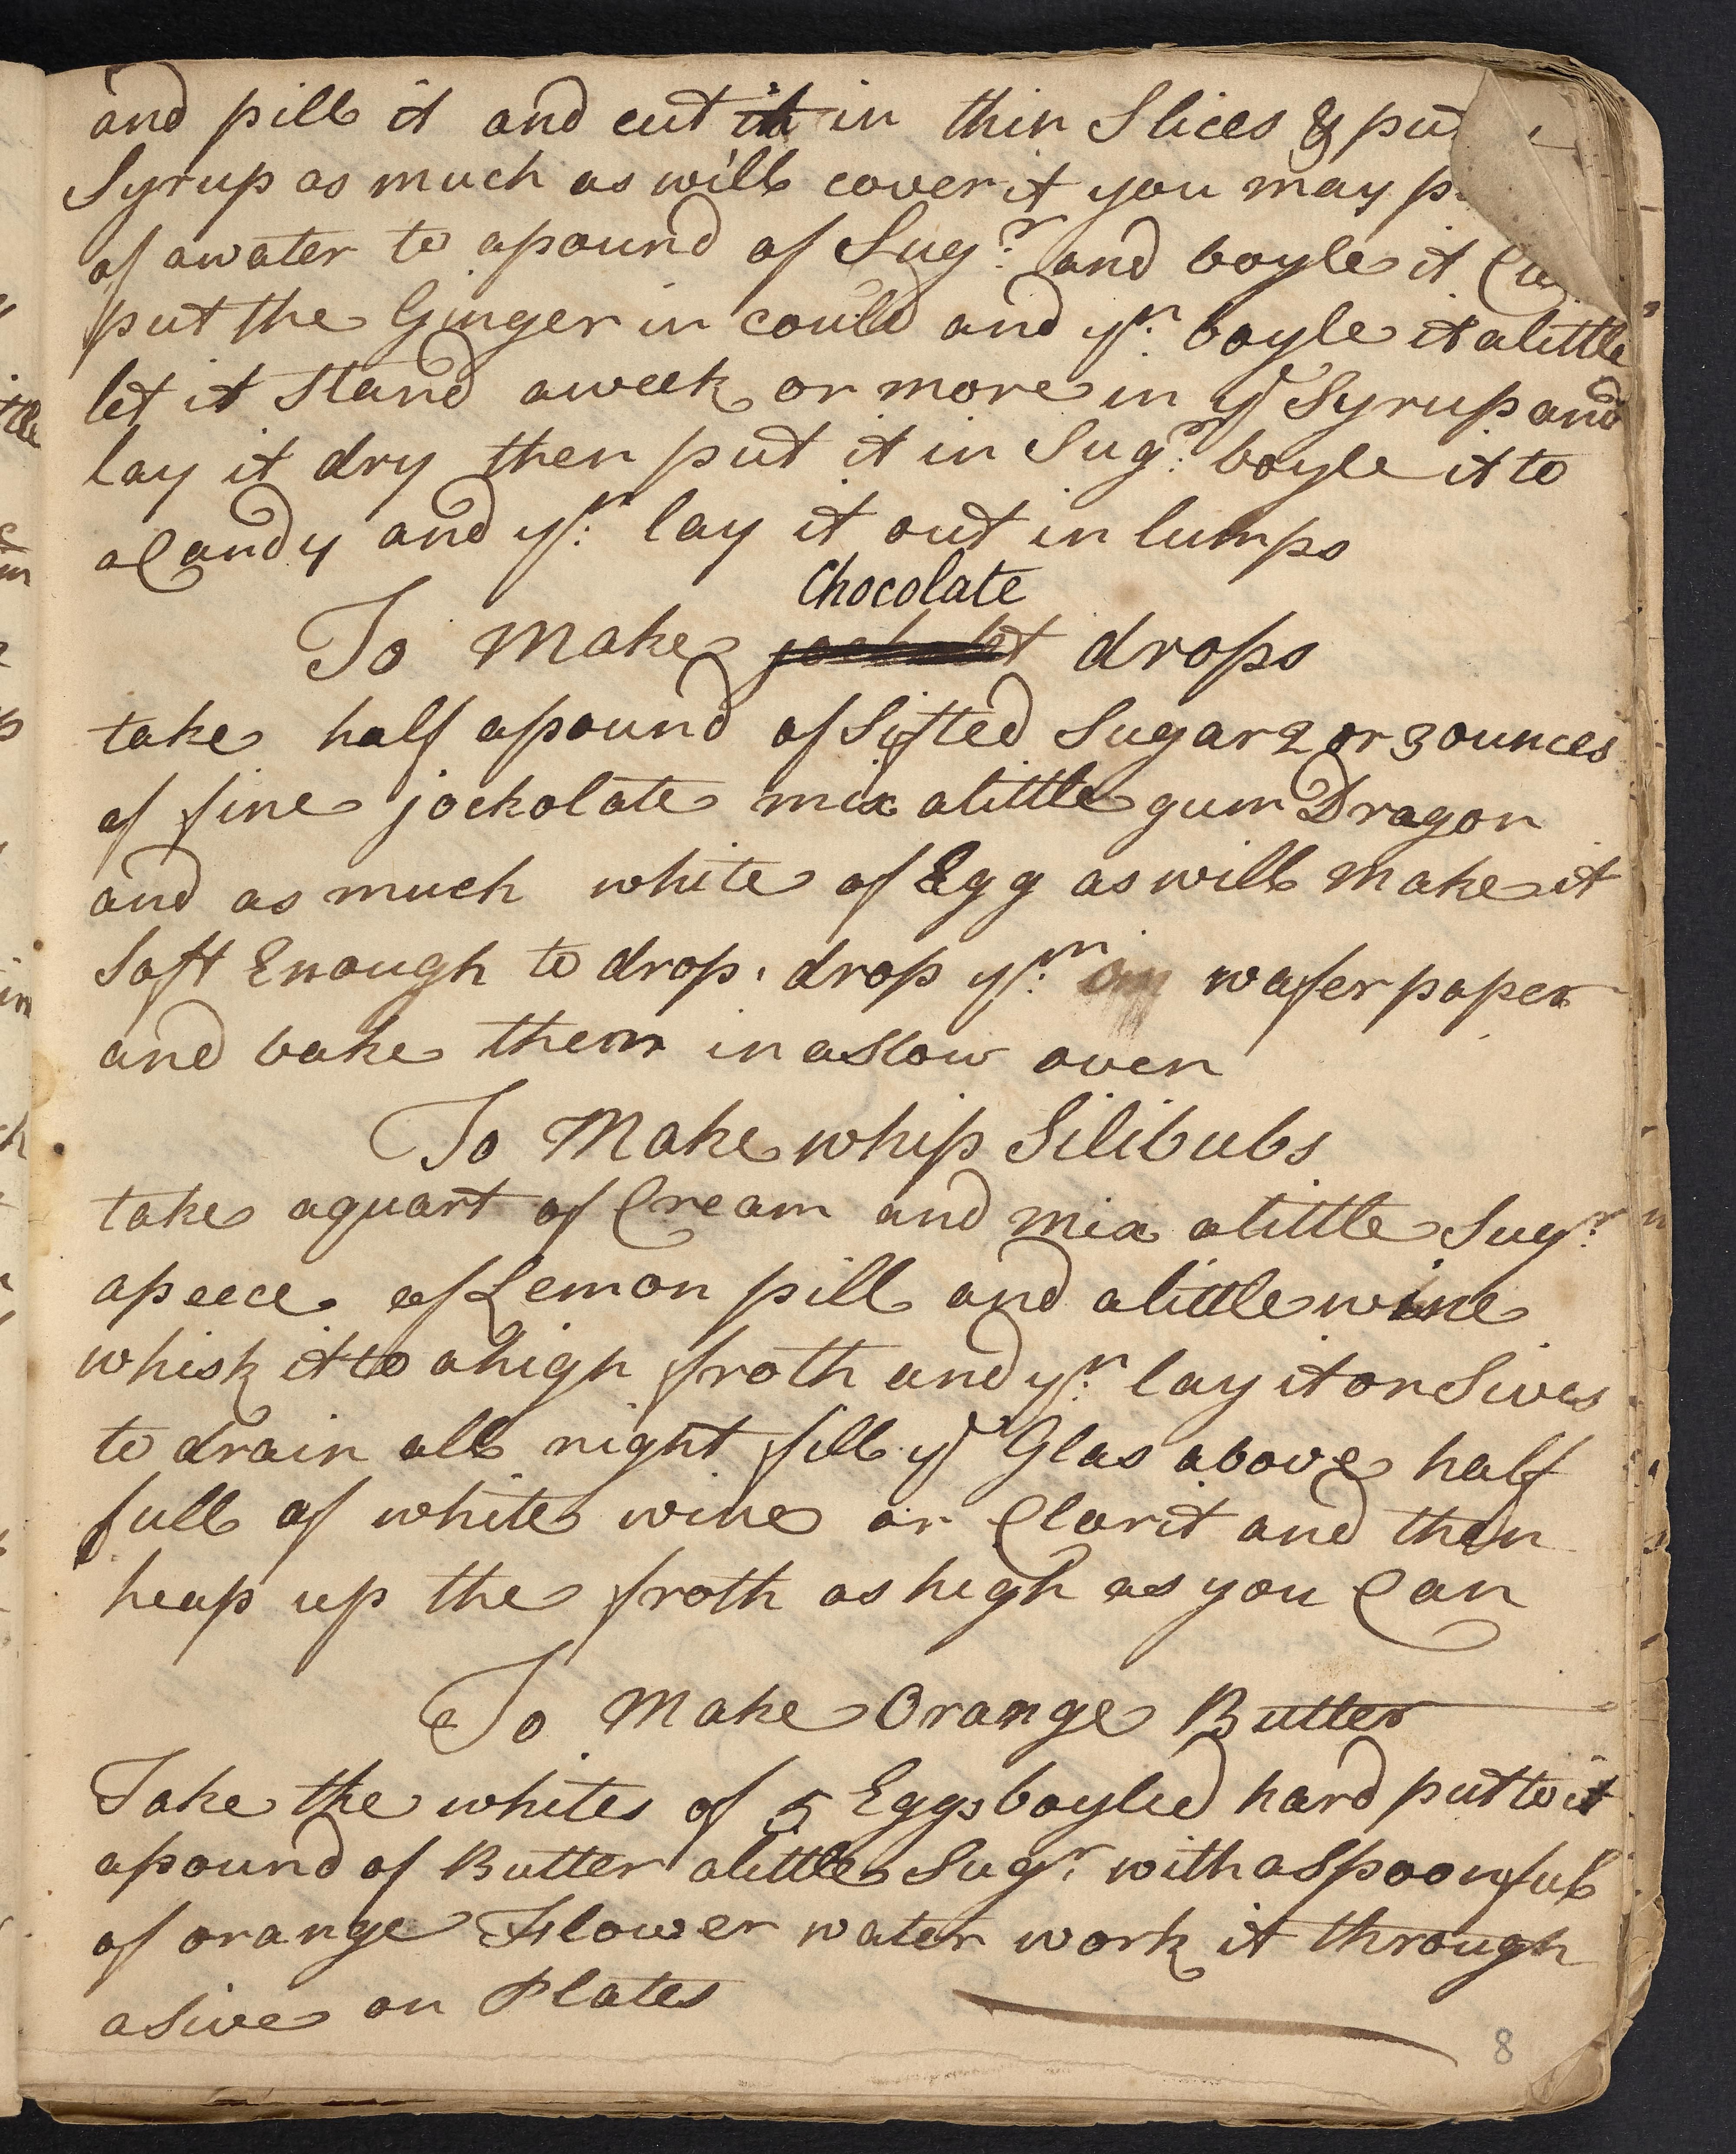 and pill it and cut it in thin Slices & put
Syrup as much as will cover it you may
of awater to apound of Sugr. and boyle it
put the Ginger in could and yn. boyle it alittle
let it Stand aweek or more in ye Syrup and
lay it dry then put it in Sugr. boyle it to
aCandy and yn. lay it out in lumps
Chocolate
To Make drops
take half apound of Sifted Sugar 2 or 3 ounces
of fine jockolate mix alittle gum Dragon
and as much white of Egg as will make it
Soft Enough to drop. drop ym. on wafer paper
and bake them in aSlow oven
To Make whip Silibubs
take aquart of Cream and mix alittle Sugr.
apeece of Lemon pill and alittle wine
whisk it to ahigh froth and yn. lay it on Sives
to drain all night fill ye Glas above half
full of white wine or Clarit and then
heap up the froth as high as you Can
To Make Orange Butter
Take the whites of 5 Eggs boyled hard put to it
apound of Butter alittle Sugr. with aSpoonfull
of orange Flower water work it through
aSive on Plates
8